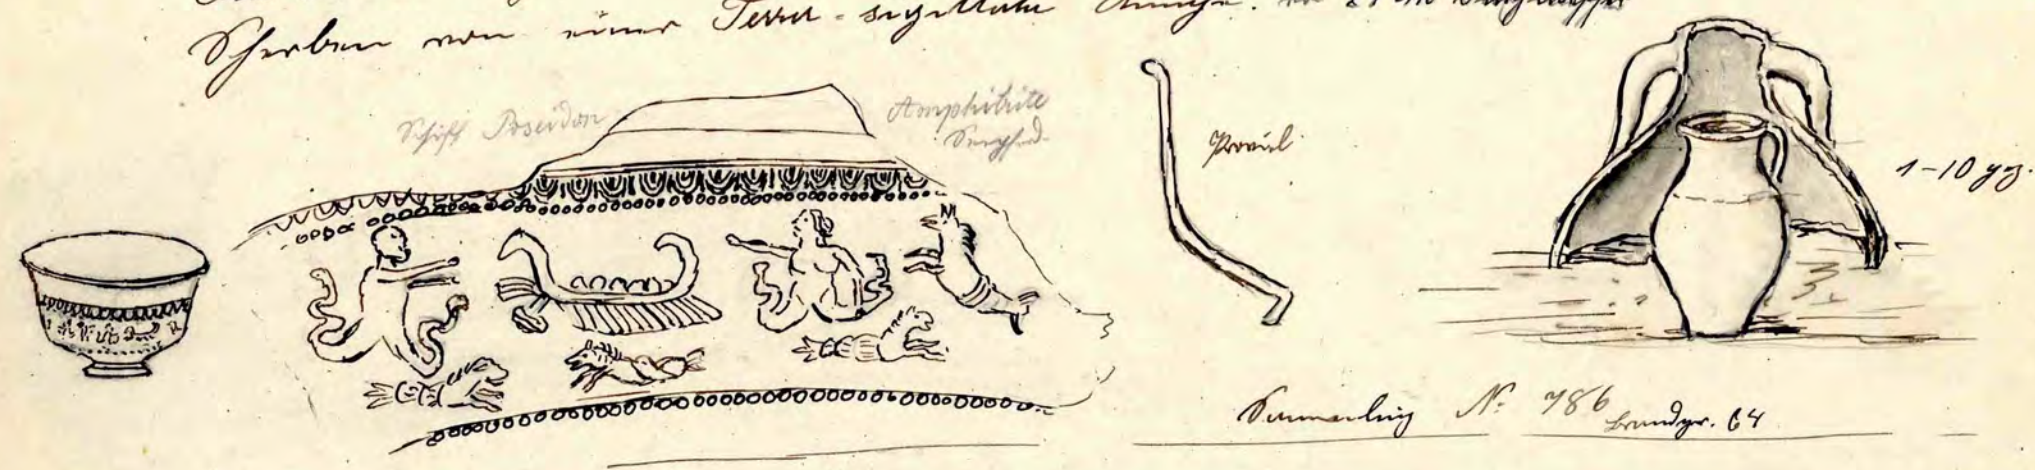 Scherben von einer Terra-sigillata
Schiff Poseidon
Amphitrite
Seepferd
Provil
1-10 gz.
Sammlung No 786
Brandgr. 64